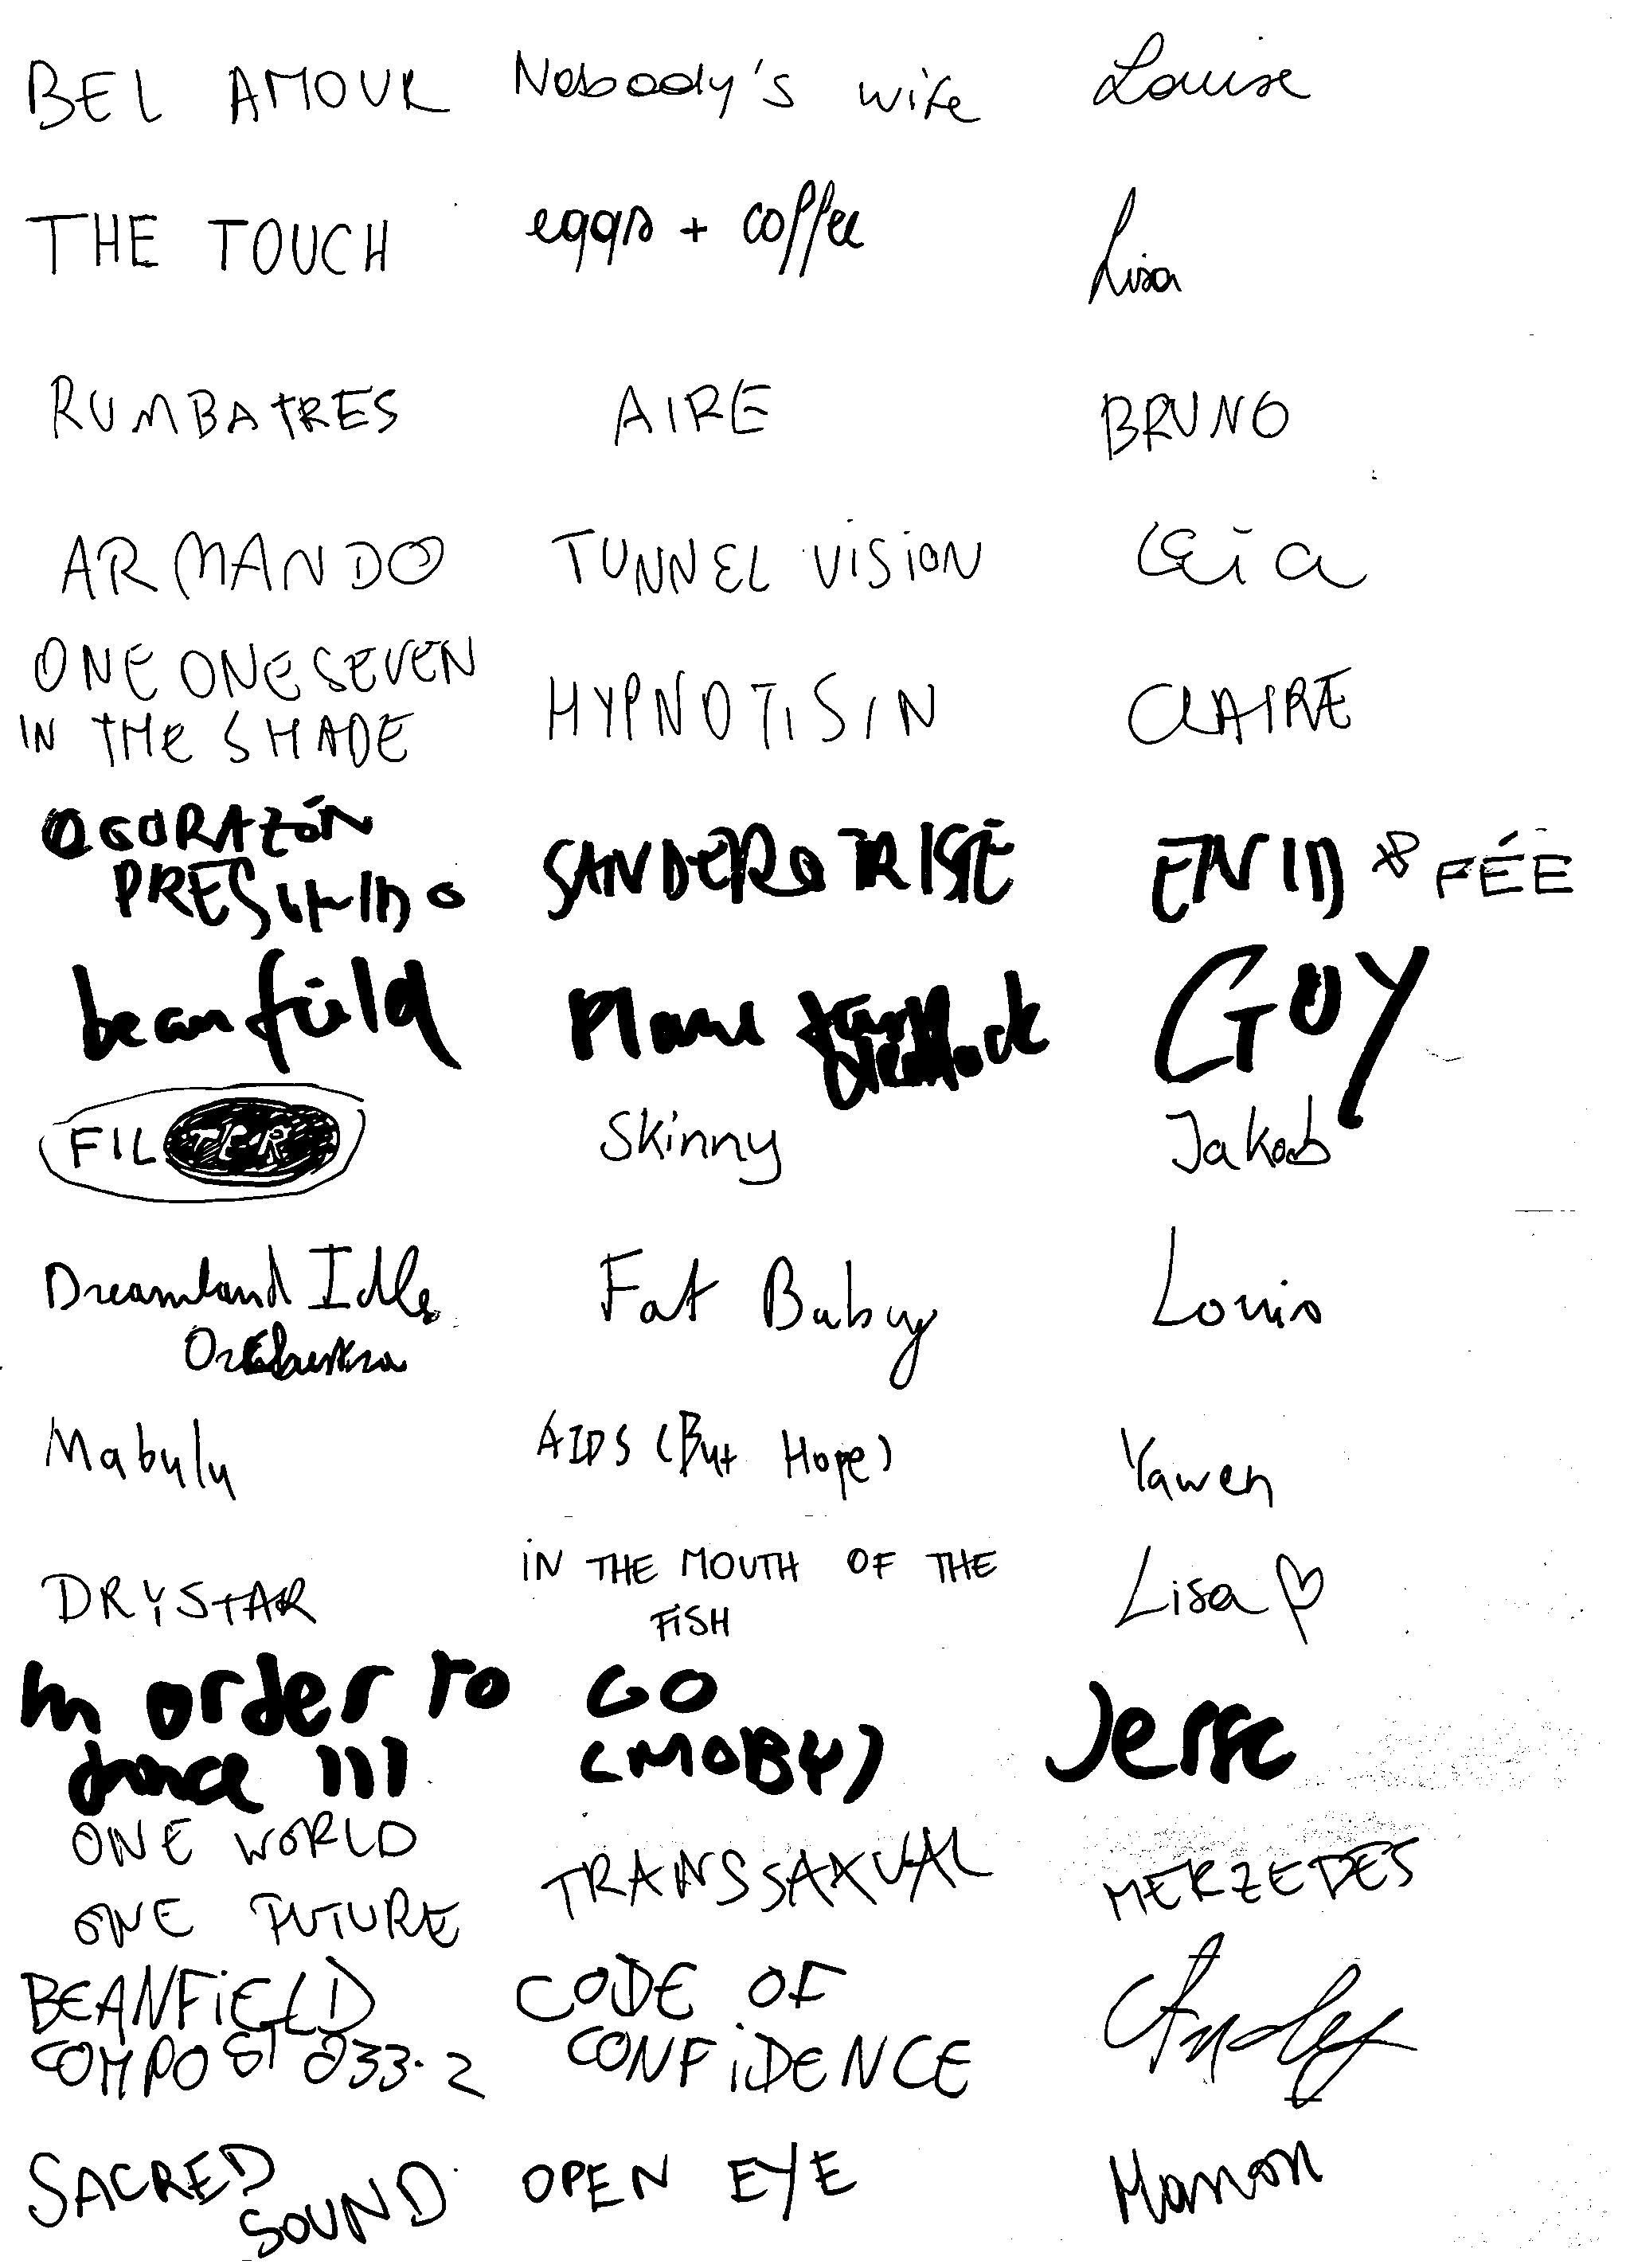 BEL AMOUR Nobody's wife Louise
THE TOUCH eggs + coffee Lisa
RUMBATRES AIRE BRUNO
ARMANDO TUNNEL VISION Leia
ONE ONE SEVEN
IN THE SHADE HYPNOTISIN CLAIRE
CORAZÓN
ENID & FÉE
beanfield Plane GUY
FILTER Skinny Jakob
Dreamland Idle
Orchestra Fat Baby Louis
Mabulu AIDS (But Hope) Yawen
DRYSTAR IN THE MOUTH OF THE
FISH Lisa
In order to GO
dance III (MOBY) Jesse
ONE WORLD
ONE FUTURE TRANSSAXUAL MERZEDES
BEANFIELD CODE OF
COMPOST 033.2 CONFIDENCE
SACRED
SOUND OPEN EYE Manon